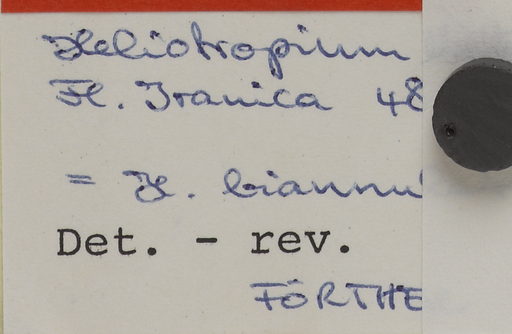 Heliotropium
Fl. Iranica 48
= H. biannu
Det. - rev.
FÖRTHE